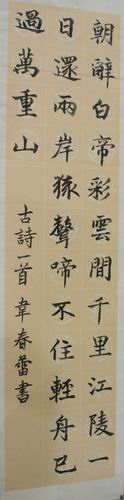 朝辭白帝彩雲間千里江陵一
日還兩岸猿聲啼不住輕舟已
過萬重山
古詩一首韋春蕾書